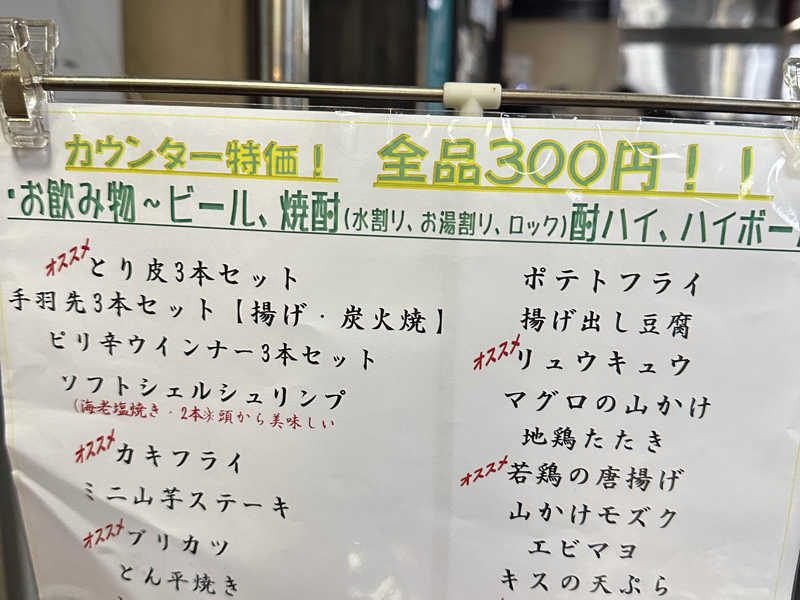 カウンター特価! 全品300円!!
・お飲み物~ビール、焼酎(水割り、お湯割り、ロック)酎ハイ、ハイボー
オススメ とり皮3本セット
手羽先3本セット【揚げ・炭火焼】
ピリ辛ウインナー3本セット
ソフトシェルシュリンプ
(海老塩焼き・2本※頭から美味しい
オススメ カキフライ
ミニ山芋ステーキ
オススメ ブリカツ
とん平焼き
ポテトフライ
揚げ出し豆腐
オススメ リュウキュウ
マグロの山かけ
地鶏たたき
オススメ 若鶏の唐揚げ
山かけモズク
エビマヨ
キスの天ぷら